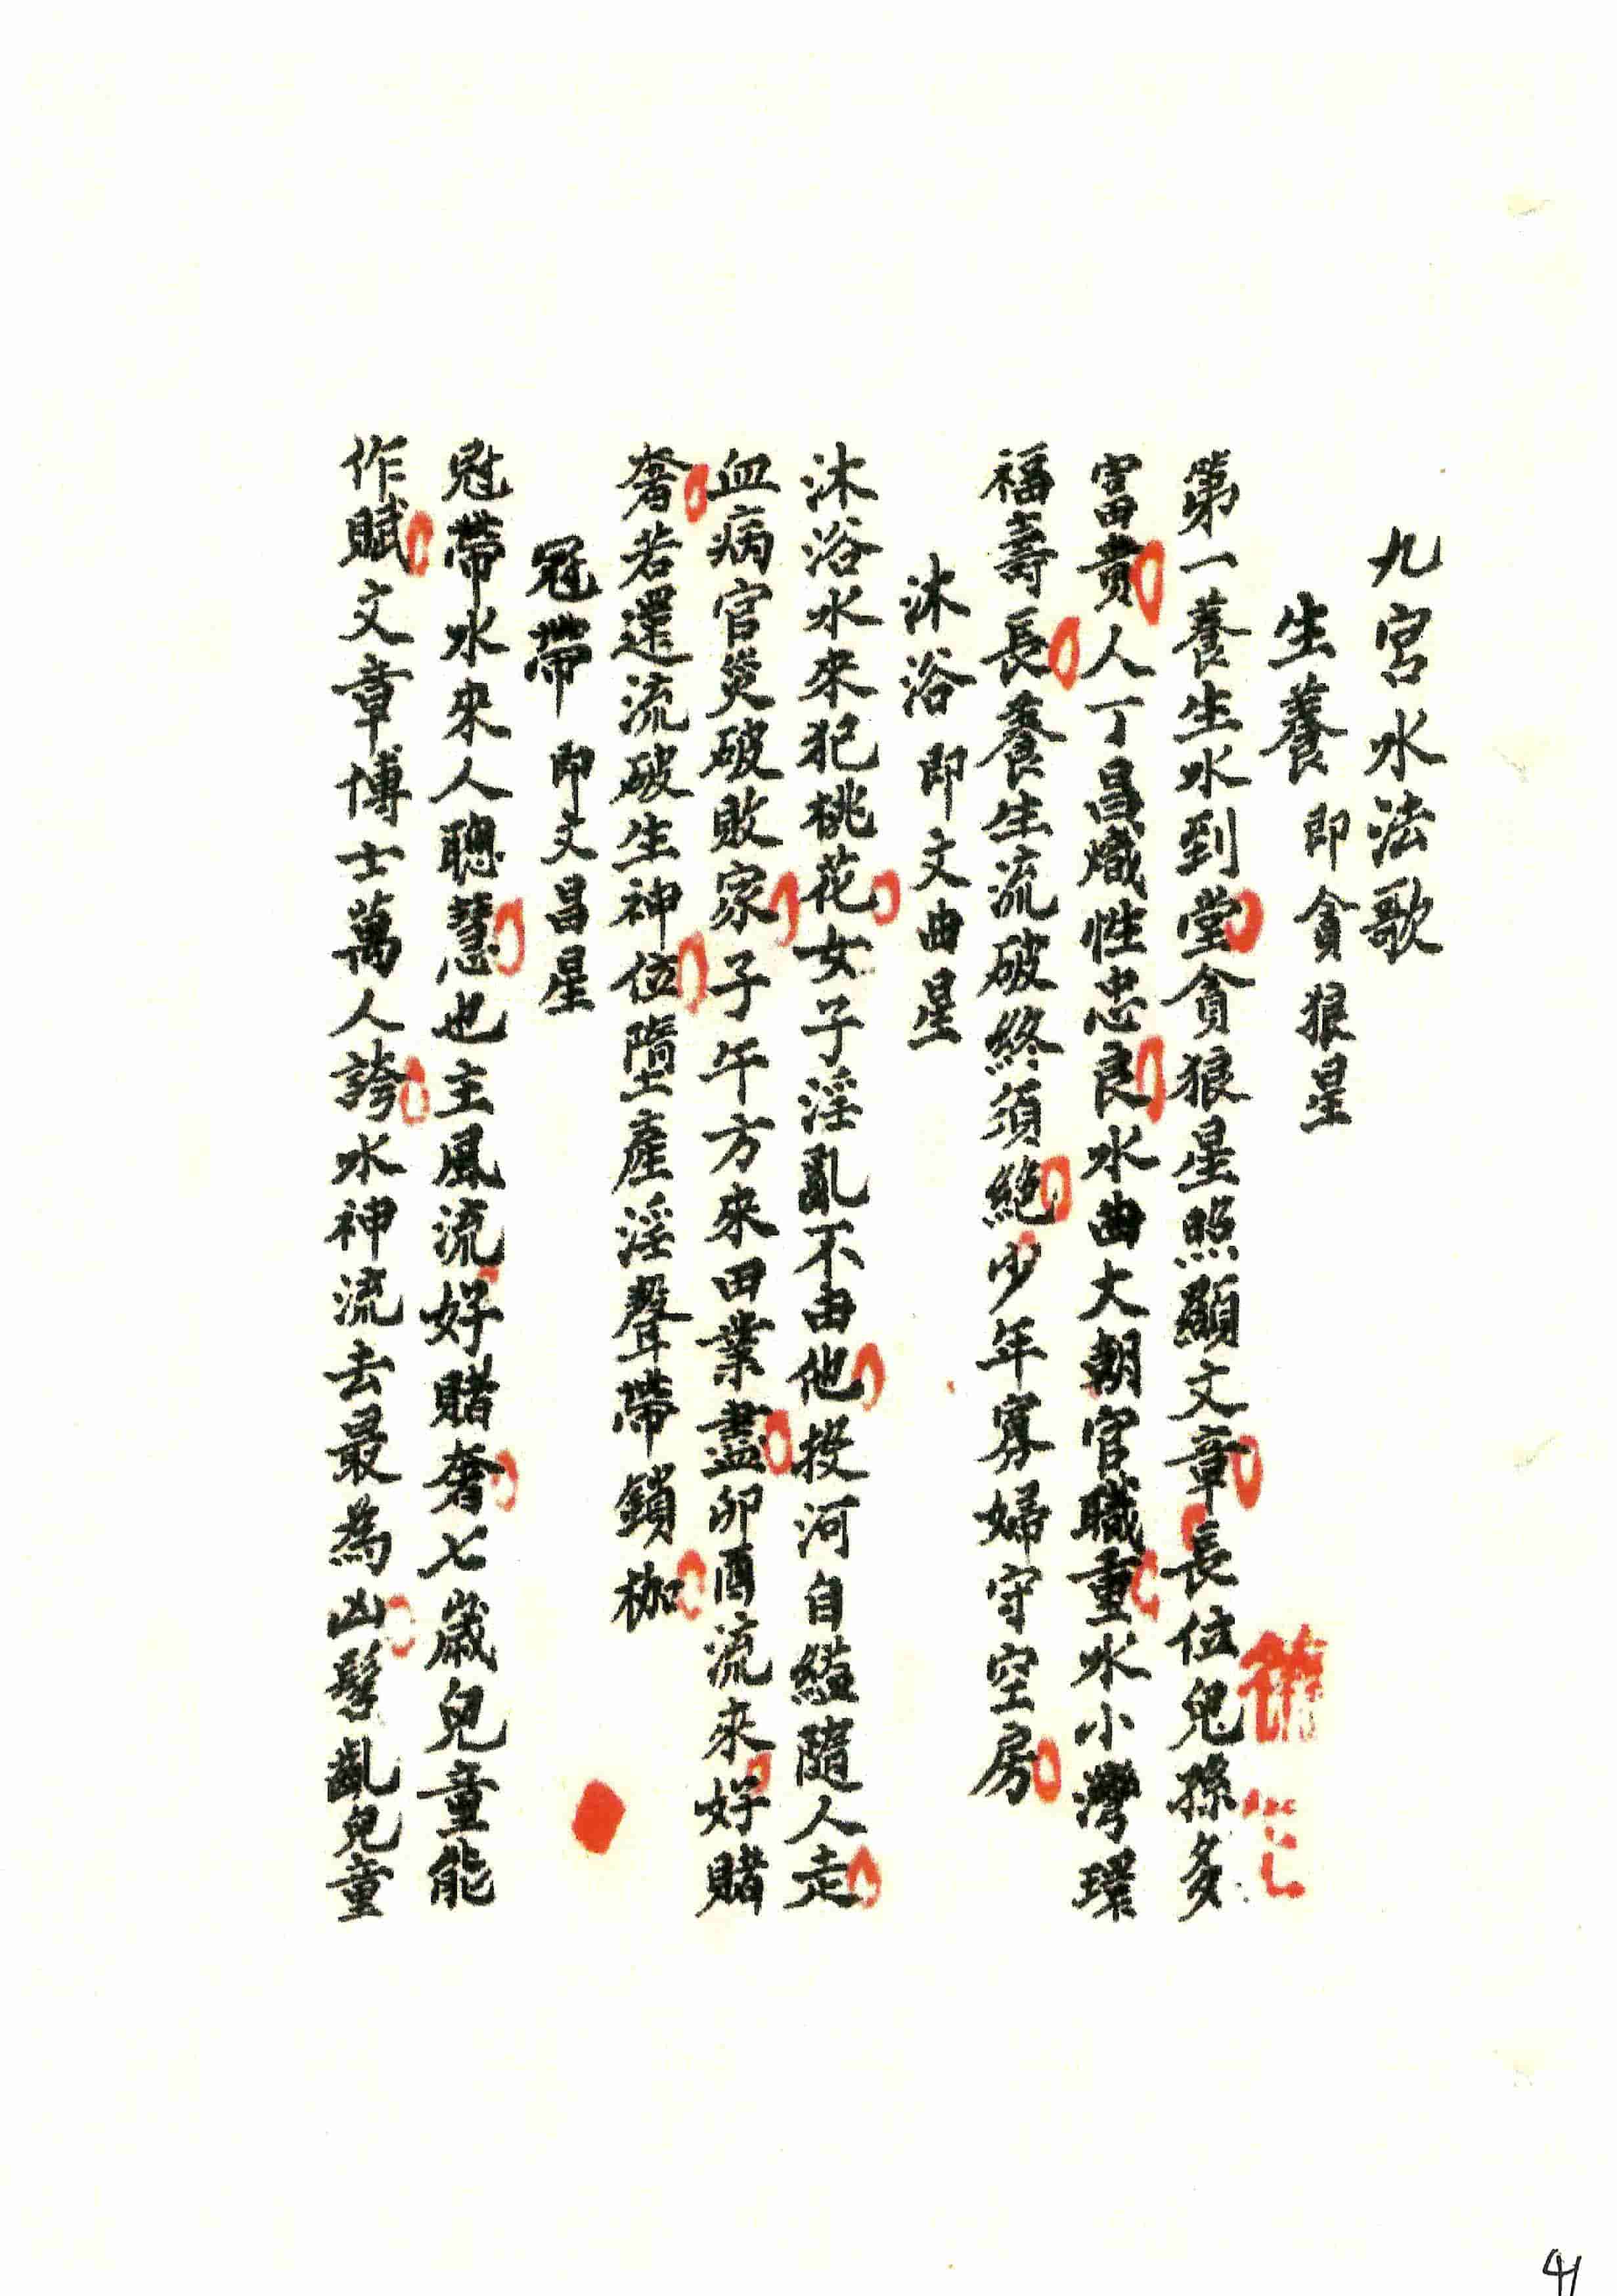 九宮水法歌
生養 即貪狼星
第一養生水到堂貪狼星照顯文章長位兒孫多
富貴人丁昌熾性忠良水曲大朝官職重水小灣環
福壽長養生流破終須絕少年寡婦守空房
沐浴 即文曲星
沐浴水來犯桃花女子淫亂不由他投河自縊隨人走
血病官災破敗家子午方來田業盡卯酉流來好賭
奢若還流破生神位墮產淫聲帶鎖枷
冠帶 即文昌星
冠帶水來人聰慧也主風流好賭奢七歲兒童能
作賦文章博士萬人誇水神流去最為凶髫齔兒童
41